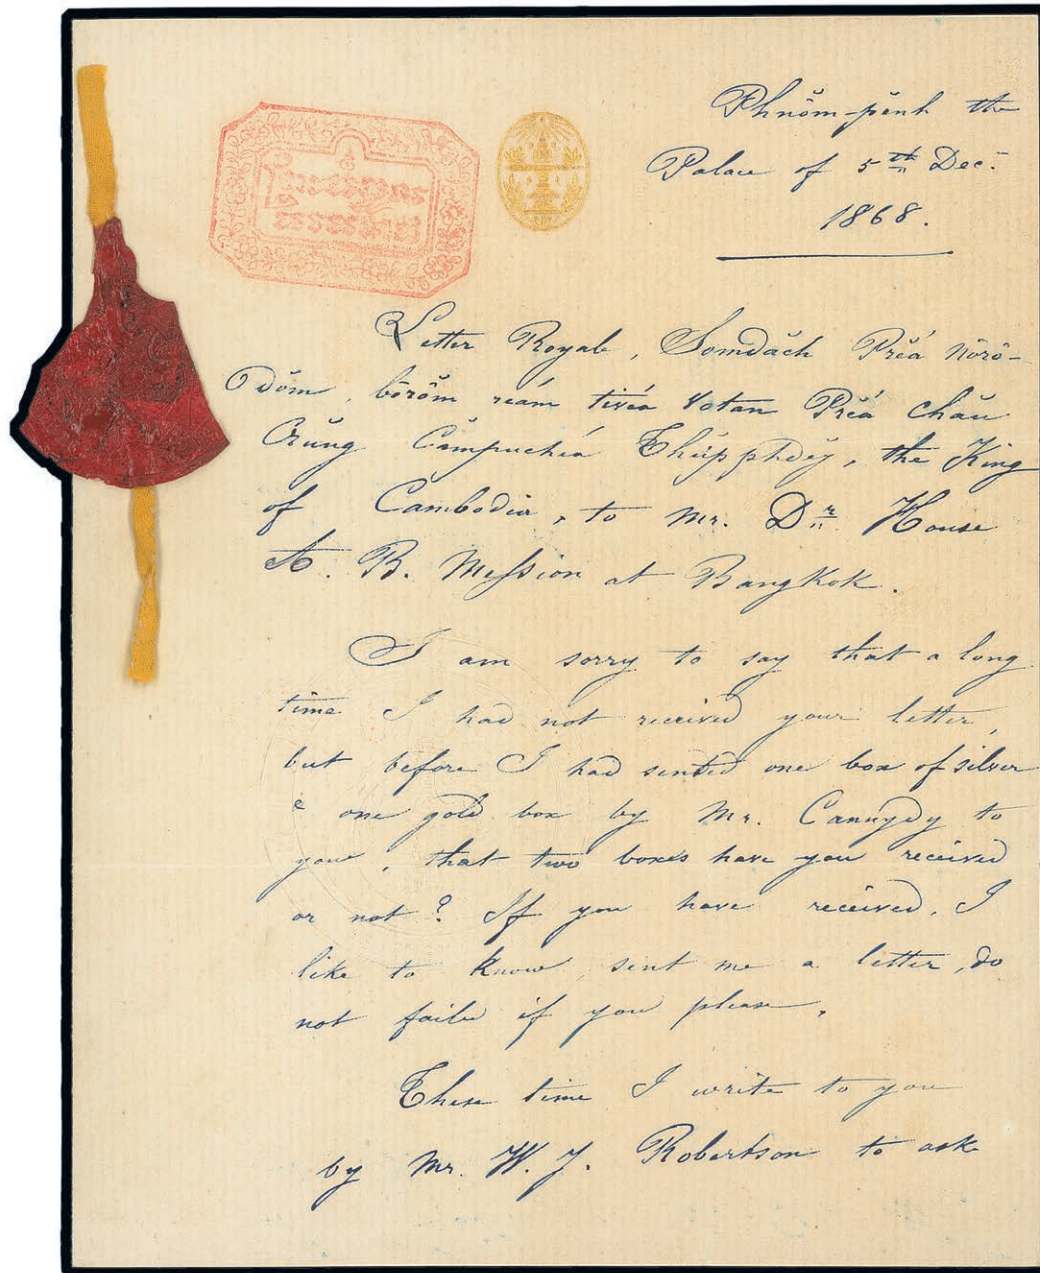 Phnŏm-pĕnh the
Palace of 5th Dec.
1868.
Letter Royale, Somdăch Prĕá Nŏrŏ-
dŏm, bŏrŏm reám tivéa Votan Prĕá chău
Crŭng Cămpuchéa Thŭpphdĕy, the King
of Cambodia, to Mr. Dr. House
A. B. Mission at Bangkok.
I am sorry to say that a long
time I had not received your letter,
but before I had sented one box of silver
& one gold box by Mr. Cannydy to
you, that two boxes have you received
or not? If you have received, I
like to know, sent me a letter, do
not faile if you please.
These time I write to you
by Mr. W. J. Robertson to ask